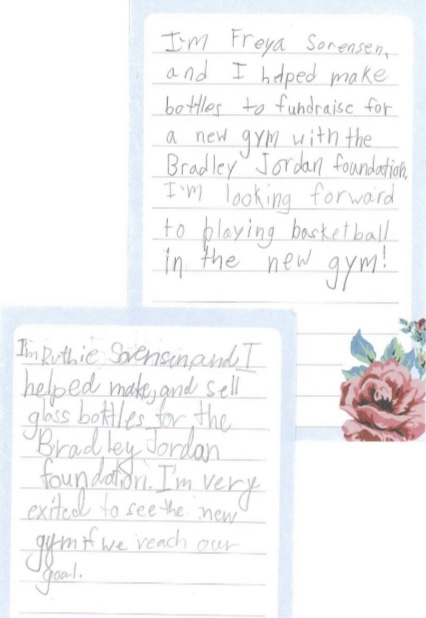 I'm Freya Sorensen,
and I helped make
bottles to fundraise for
a new gym with the
Bradley Jordan foundation,
I'm looking forward
to playing basketball
in the new gym!
I'm Ruthie Sorensen, and I
helped make, and sell
glass bottles for the
Bradley Jordan
foundation. I'm very
exited to see the new
gym if we reach our
goal.